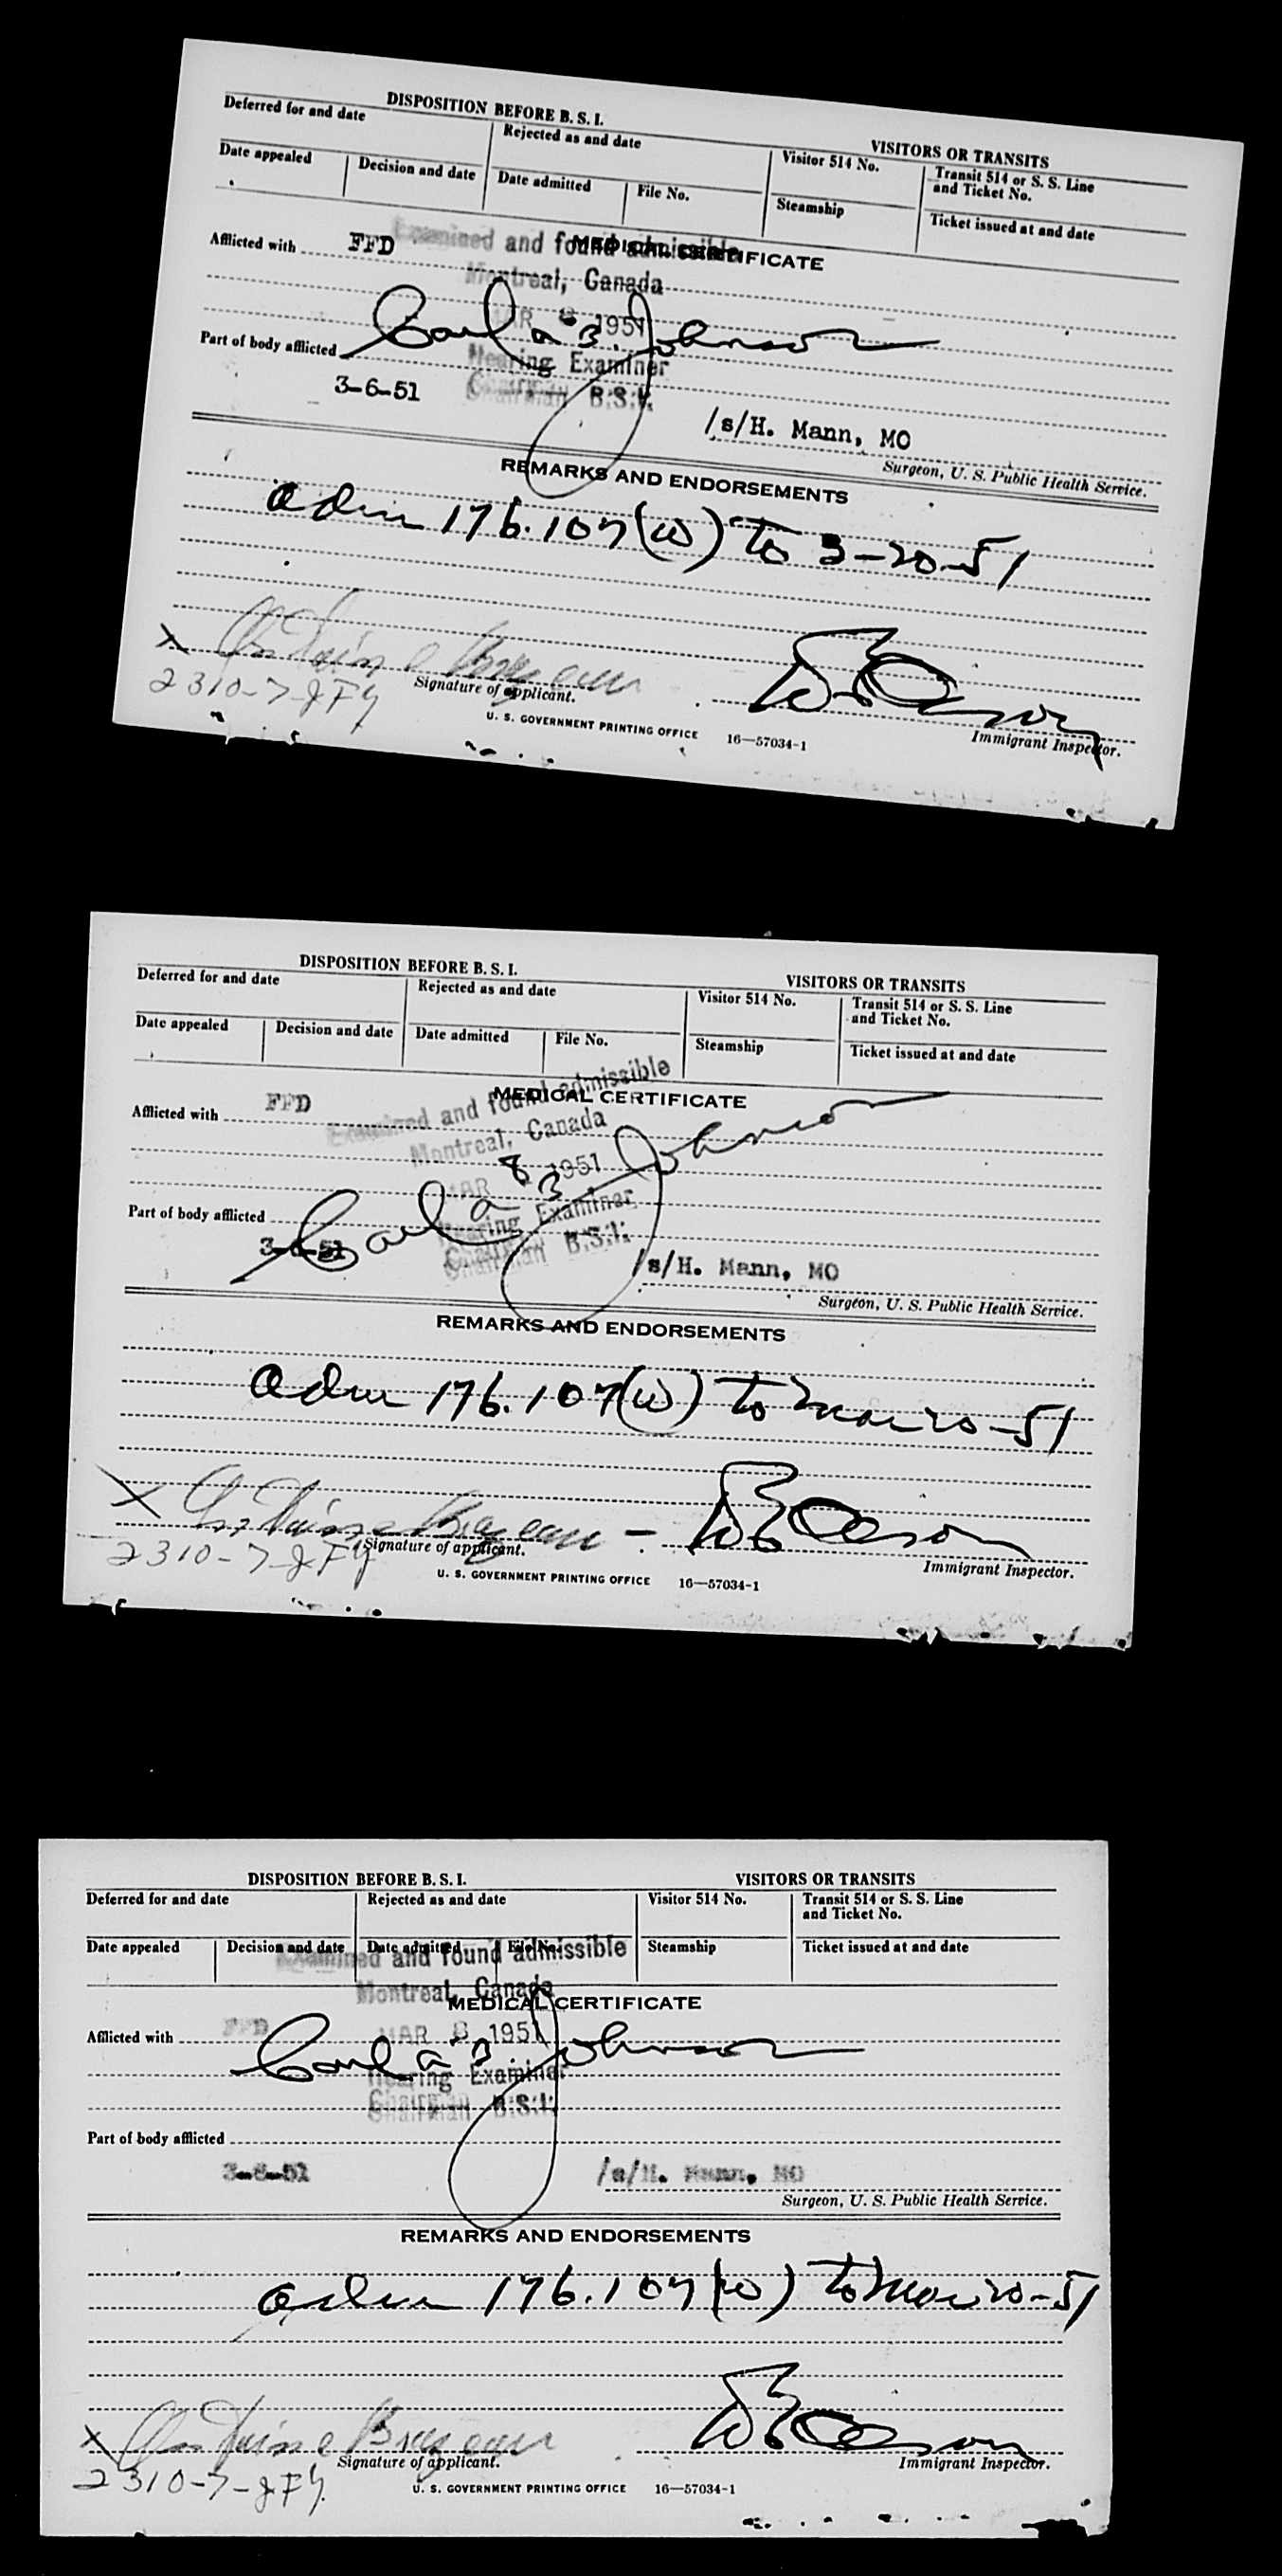 DISPOSITION BEFORE B. S. I.
VISITORS OR TRANSITS
Deferred for and date
Rejected as and date
Visitor 514 No.
Transit 514 or S. S. Line
and Ticket No.
Date appealed
Decision and date
Date admitted
File No.
Steamship
Ticket issued at and date
MEDICAL CERTIFICATE
Afflicted with FFD
Examined and found admissible
Montreal, Canada
MAR 8 1951
Carl a B. Johnson
Part of body afflicted
Hearing Examiner
Chairman B.S.I.
3-6-51
/s/H. Mann, MO
Surgeon, U. S. Public Health Service.
REMARKS AND ENDORSEMENTS
adm 176.107(w) to 3-20-51
X Antoine Brazeau
Signature of applicant.
2310-7-
Immigrant Inspector.
U. S. GOVERNMENT PRINTING OFFICE 16—57034-1
DISPOSITION BEFORE B. S. I.
VISITORS OR TRANSITS
Deferred for and date
Rejected as and date
Visitor 514 No.
Transit 514 or S. S. Line
and Ticket No.
Date appealed
Decision and date
Date admitted
File No.
Steamship
Ticket issued at and date
MEDICAL CERTIFICATE
Afflicted with FFD
Examined and found admissible
Montreal, Canada
MAR 8 1951
Carl a B Johnson
Part of body afflicted
Hearing Examiner
Chairman B.S.I.
3-6-51
/s/H. Mann, MO
Surgeon, U. S. Public Health Service.
REMARKS AND ENDORSEMENTS
adm 176.107(w) to Mar 20-51
X Antoine Brazeau
Signature of applicant.
2310-7-
Immigrant Inspector.
U. S. GOVERNMENT PRINTING OFFICE 16—57034-1
DISPOSITION BEFORE B. S. I.
VISITORS OR TRANSITS
Deferred for and date
Rejected as and date
Visitor 514 No.
Transit 514 or S. S. Line
and Ticket No.
Date appealed
Decision and date
Date admitted
File No.
Steamship
Ticket issued at and date
Examined and found admissible
Montreal, Canada
MEDICAL CERTIFICATE
Afflicted with FFD
MAR 8 1951
Carl a B. Johnson
Hearing Examiner
Chairman B.S.I.
Part of body afflicted
3-6-51
/s/H. Mann, MO
Surgeon, U. S. Public Health Service.
REMARKS AND ENDORSEMENTS
adm 176.107(w) to Mar 20-51
X Antoine Brazeau
Signature of applicant.
2310-7-
Immigrant Inspector.
U. S. GOVERNMENT PRINTING OFFICE 16—57034-1